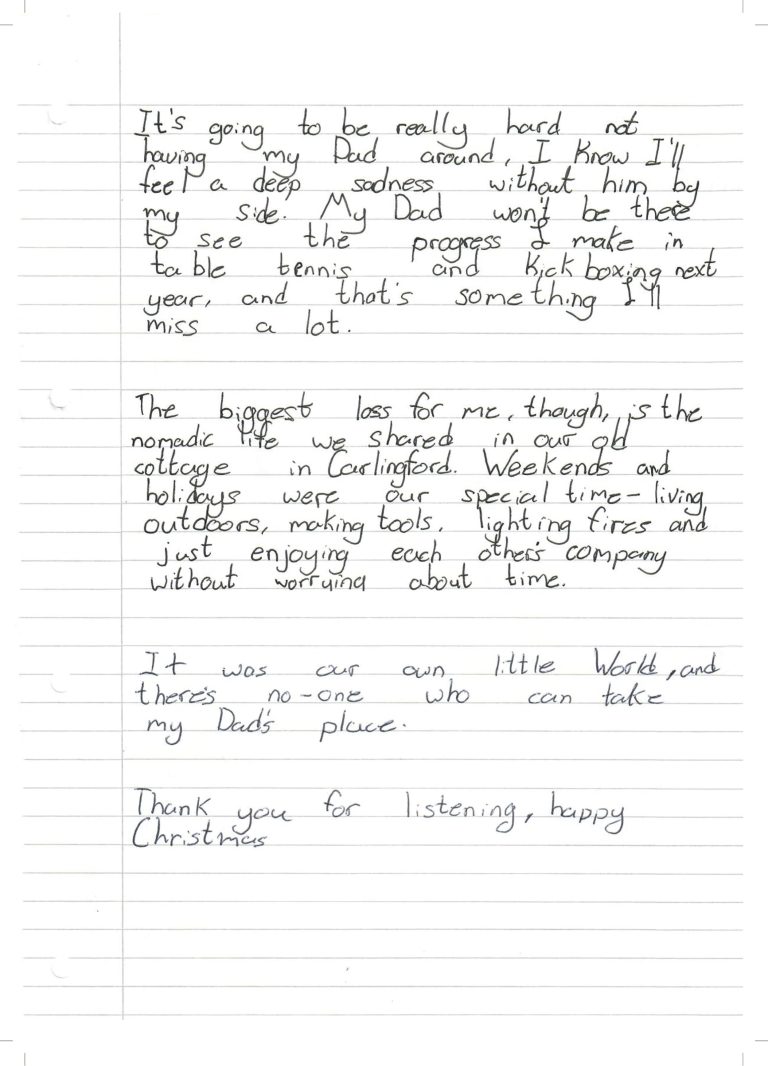 It's going to be really hard not
having my Dad around, I know I'll
feel a deep sadness without him by
my side. My Dad won't be there
to see the progress I make in
table tennis and kickboxing next
year, and that's something I'll
miss a lot.
The biggest loss for me, though, is the
nomadic life we shared in our old
cottage in Carlingford. Weekends and
holidays were our special time - living
outdoors, making tools, lighting fires and
just enjoying each other's company
without worrying about time.
It was our own little World, and
there's no-one who can take
my Dad's place.
Thank you for listening, happy
Christmas